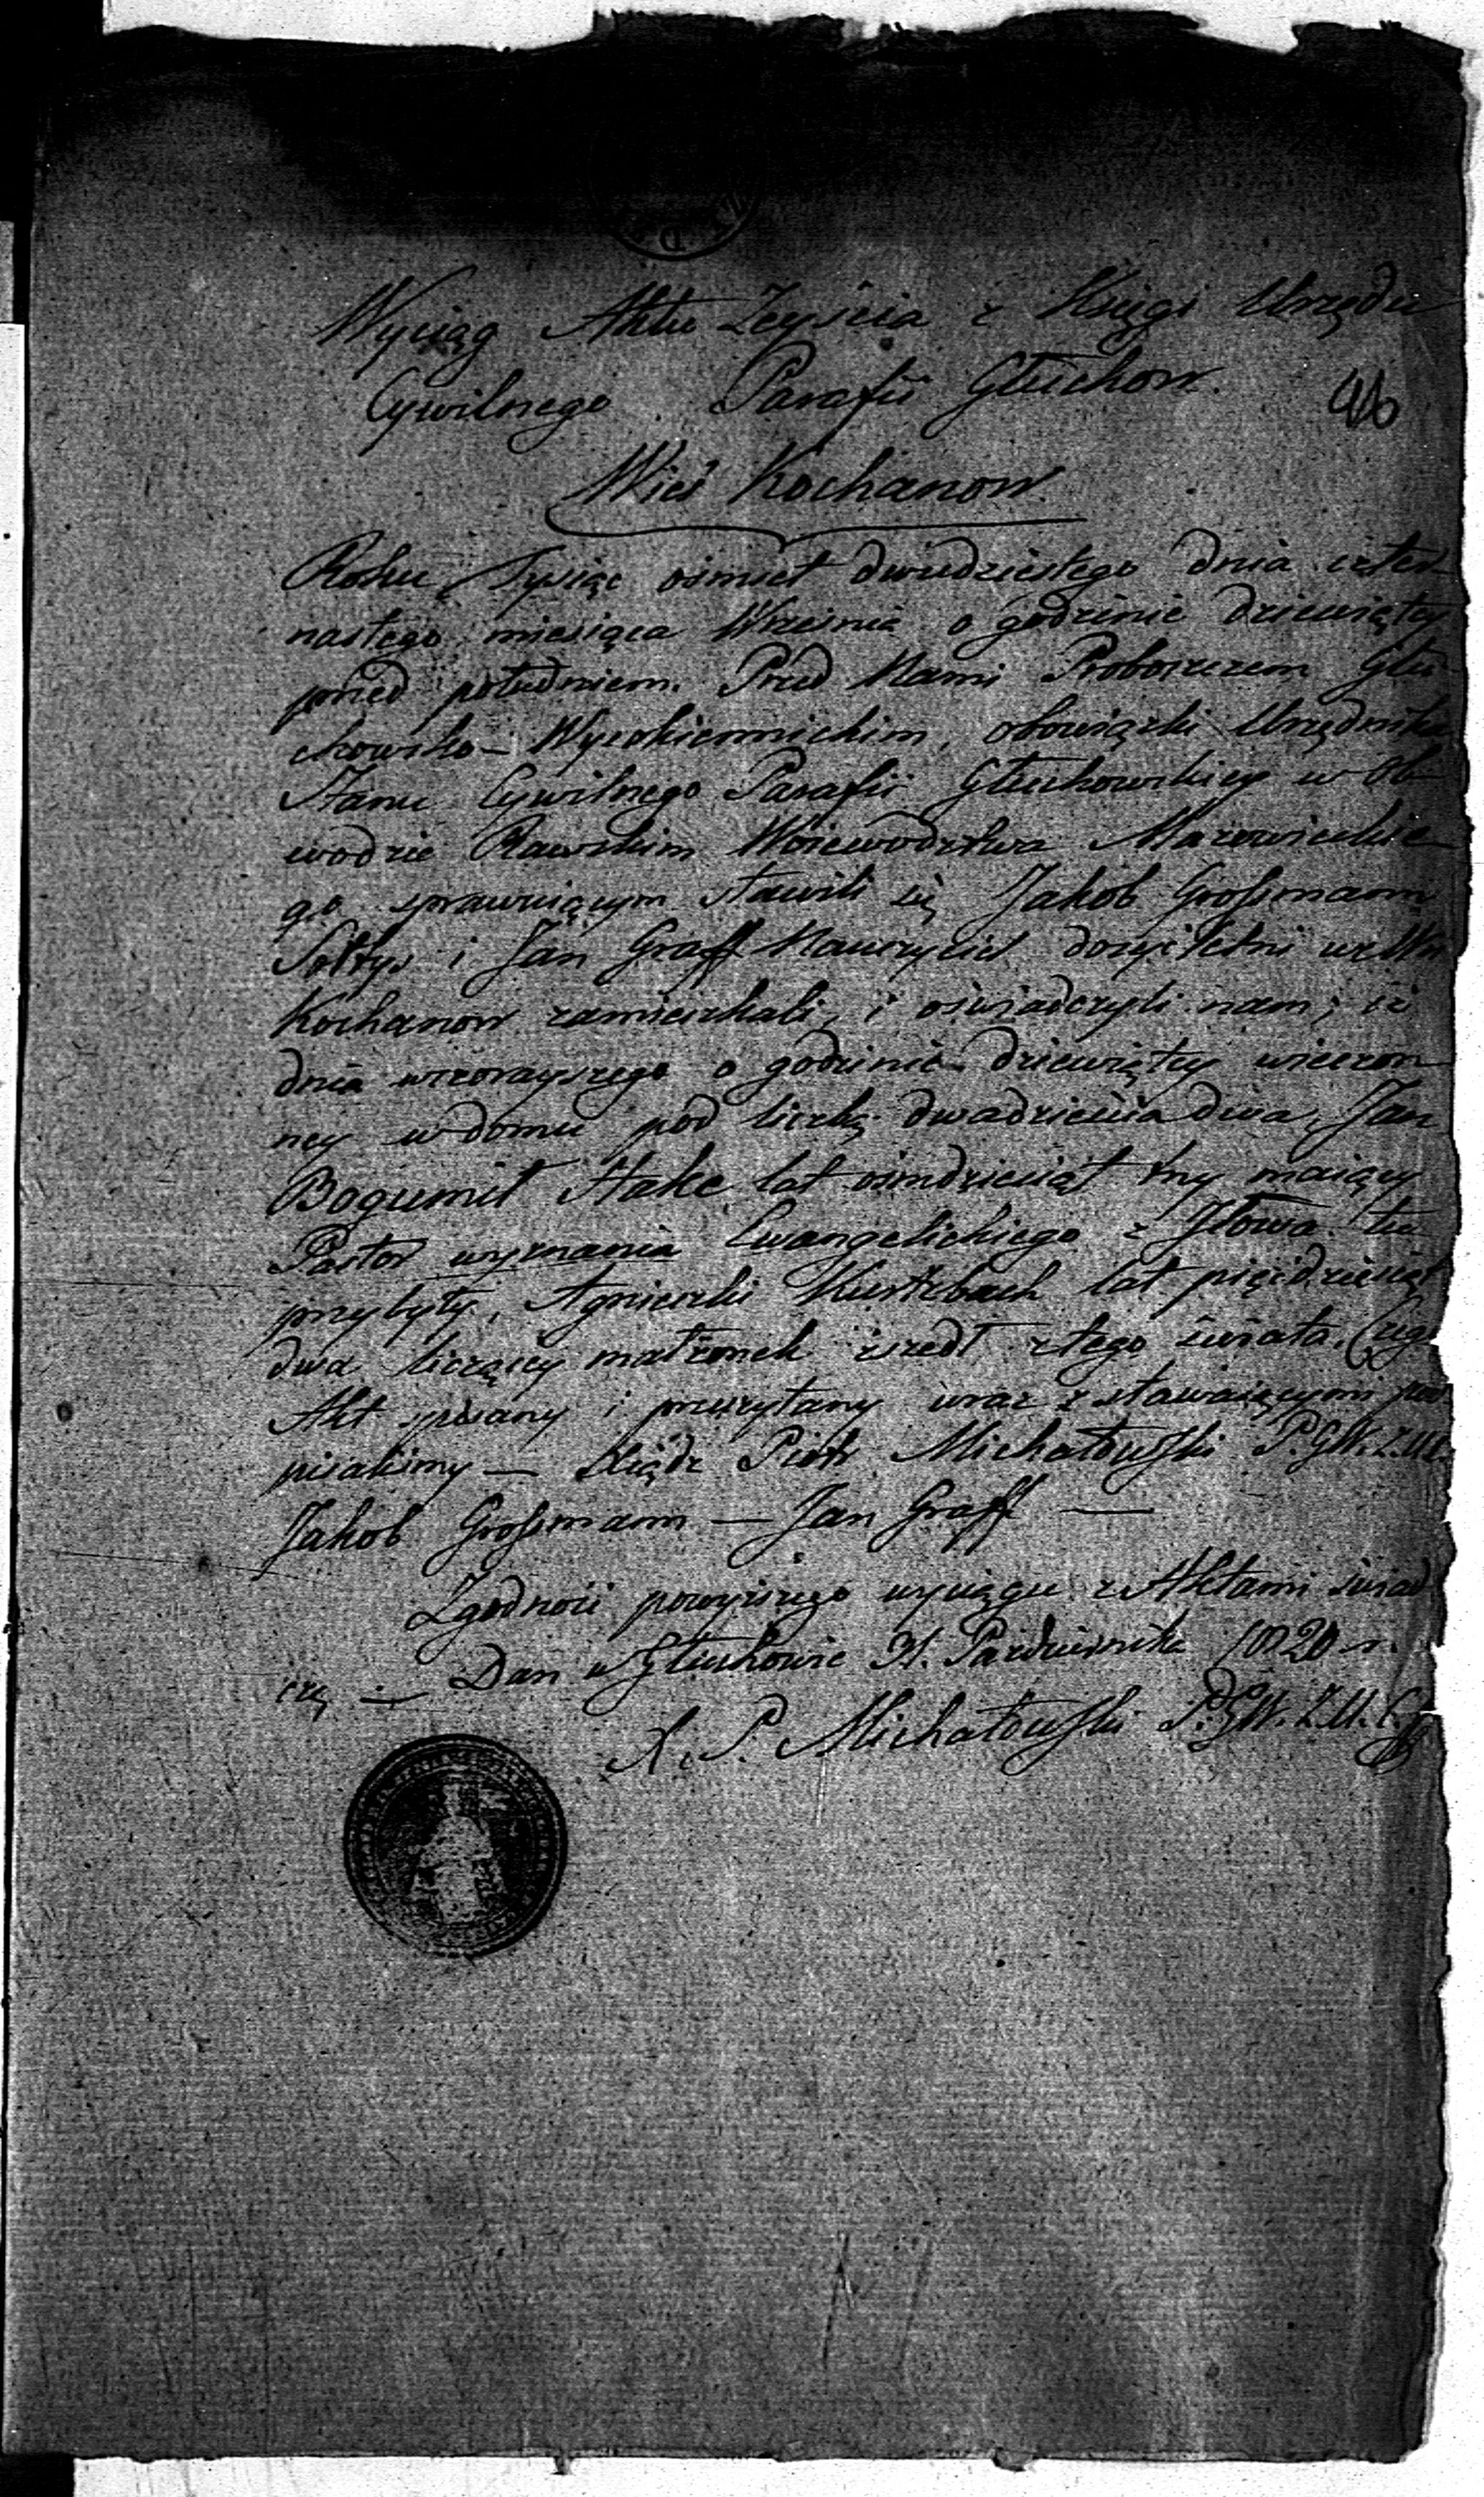 Wyciąg Aktu Zeyścia z Księgi Urzędu
Cywilnego Parafii Głuchow.
46
Wieś Kochanow
Roku Tysiąc ośmset dwudziestego dnia czter-
nastego miesiąca Września o godzinie dziewiątey
przed południem. Przed Nami Proboszczem Głu-
chowsko-Wysokiennickim, obowiązki Urzędnika
Stanu Cywilnego Parafii Głuchowskiey w Ob-
wodzie Rawskim Woiewodztwa Mazowieckie-
go sprawuiącym stawili się Jakob Großmann
Sołtys i Jan Graff Nauczyciel dozyletni we Wsi
Kochanow zamieszkali, i oświadczyli nam; iż
dnia wczorayszego o godzinie dziewiątey wieczor-
ney w domu pod liczbą dwadzieścia dwa, Jan
Bogumił Hake lat ośmdziesiąt trzy maiący
Pastor wyznania Ewangelickiego z Iłowa tu
przybyły, Agnieszki lat pięćdziesiąt
dwa liczącey małżonek zszedł z tego świata.
Akt spisany i przeczytany wraz z stawaiącymi pod-
pisaliśmy — Xiądz Piotr Michałowski P.GW.Z.U.
Jakob Großmann — Jan Graff —
Zgodność powyższego wyciągu z Aktami świad-
czę — Dan w Głuchowie 31. Października 1820 r.
X. P. Michałowski P.GW.Z.U.C.